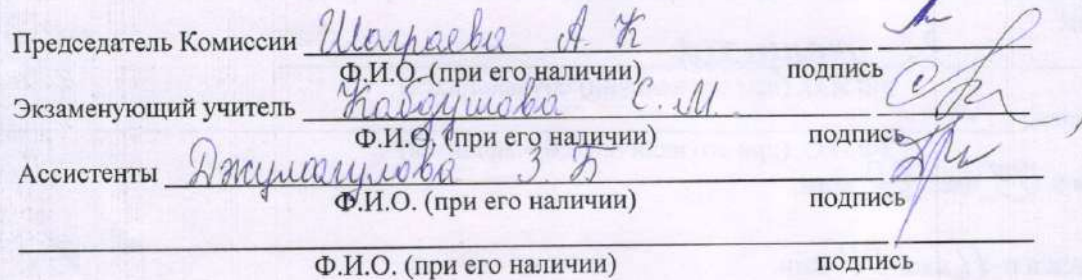 Председатель Комиссии Шаграева А. К
Ф.И.О. (при его наличии) подпись
Экзаменующий учитель С. М.
Ф.И.О. (при его наличии) подпись
Ассистенты Джумагулова З. Б
Ф.И.О. (при его наличии) подпись
Ф.И.О. (при его наличии) подпись